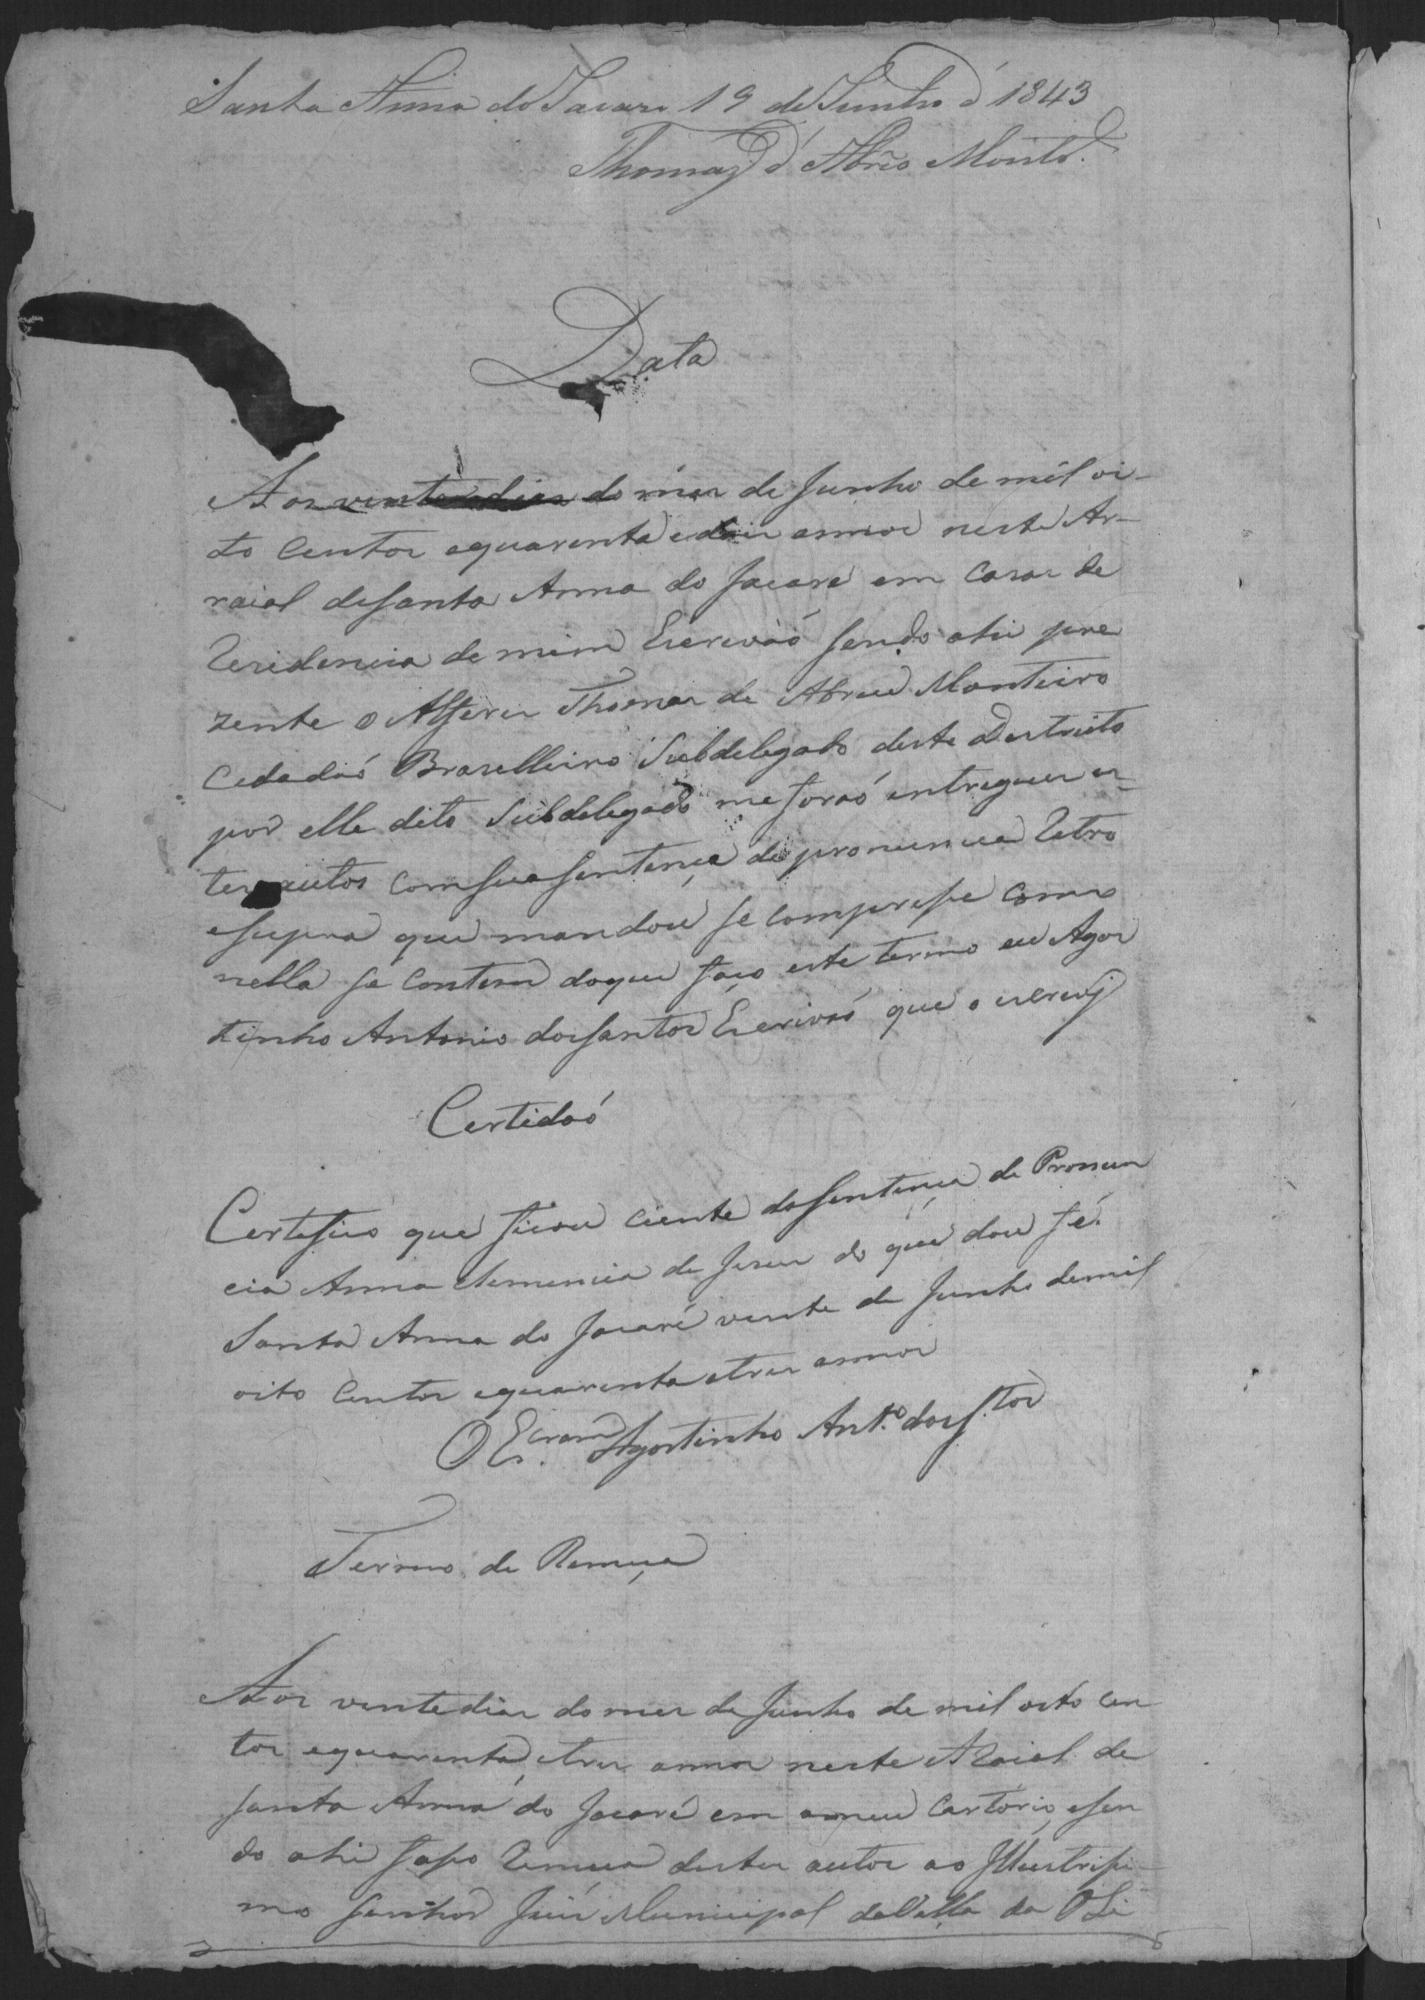 Santa Anna do Jacaré 19 de Junho d' 1843
Thomaz d' Abrêo Montr.º
Data
Aos vinte dias do mes de Junho de mil oi-
to Centos equarenta e dois annos neste Ar-
raial deSanta Anna do Jacaré em Casas de
Rezidencia de mim Escrivaõ sendo ahi pre
zente o Alferes Thomas de Abreu Monteiro
Cedadaõ Brazelleiro Subdelegado deste Destricto
por elle dito Subdelegado me foraõ entregues es-
tes autos Com sua Sentença de pronuncia Retro
esupra que mandou se comprisse como
nella se Contem doque faço este termo eu Agos
tinho Antonio dos Santos Escrivaõ que o escrevy
Certidaõ
Certefico que ficou ciente da Sentença de Pronun
cia Anna Clemencia de Jesus do que dou fé.
Santa Anna do Jacaré vinte de Junho demil
oito Centos equarenta etres annos
O Es.cram Agostinho Ant.º dos S.tos
Termo de Remeça
Aos vinte dias do mes de Junho de mil oito cen
tos equarenta etres annos neste Araial de
Santa Anna do Jacaré em o meu Cartorio, esen
do ahi faço Remeça destes autos ao Illustrissi-
mo Senhor Juis Municipal da Villa da Oli